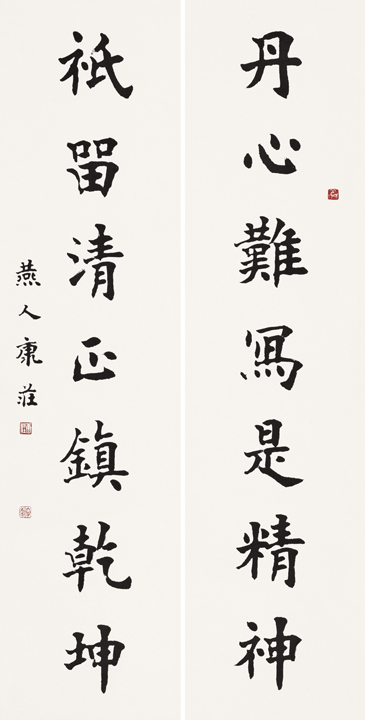 丹心難寫是精神
祇留清正鎮乾坤
燕人康莊